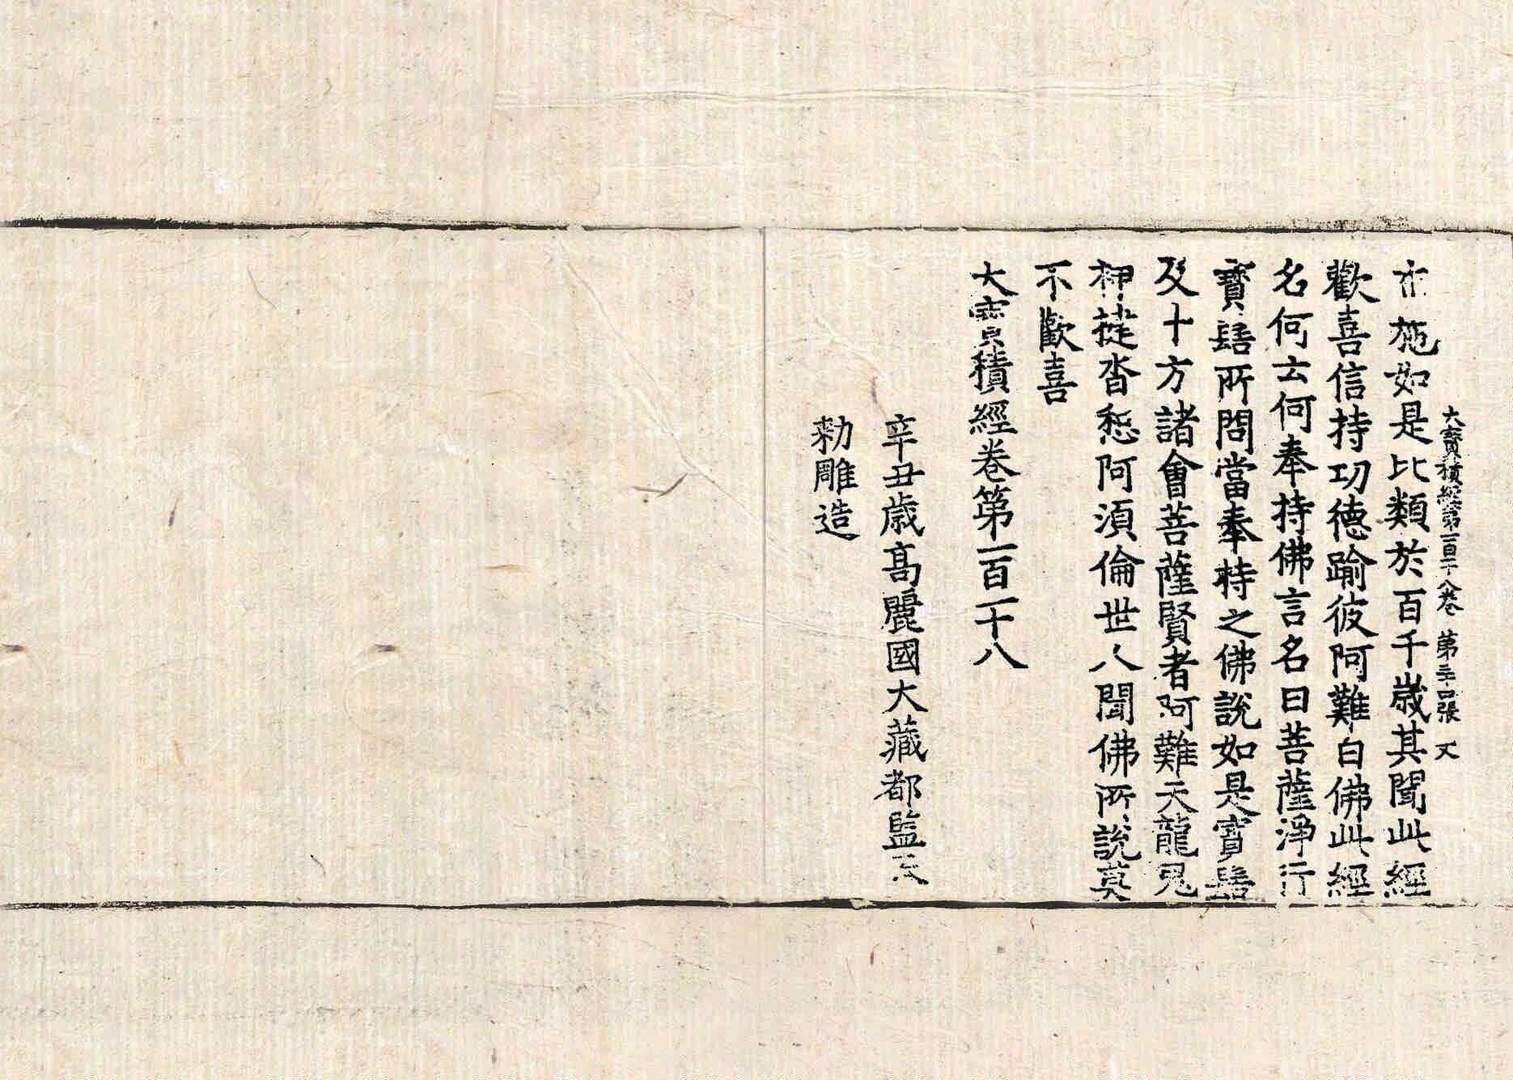 大寶積經第一百一十八卷 第三十張 文
布施如是比類於百千歲其聞此經
歡喜信持功德踰彼阿難白佛此經
名何云何奉持佛言名曰菩薩淨行
寶髻所問當奉持之佛說如是寶髻
及十方諸會菩薩賢者阿難天龍鬼
神揵沓惒阿須倫世人聞佛所說莫
不歡喜
大寶積經卷第一百一十八
辛丑歲高麗國大藏都監奉
勑雕造